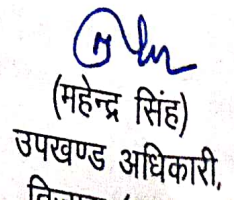 (महेन्द्र सिंह)
उपखण्ड अधिकारी,